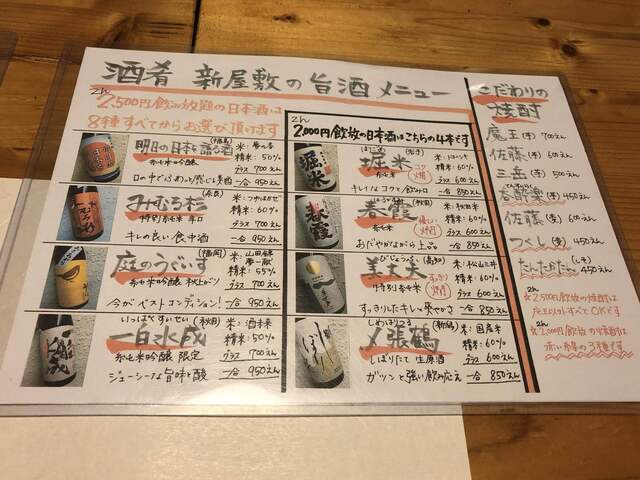 酒肴 新屋敷の旨酒メニュー
2h
2,500円飲み放題の日本酒は
8種すべてからお選び頂けます
明日の日本を語る酒
純米吟醸
精米:50%
グラス 700えん
一合 950えん
(奈良)
みむろ杉
特別純米 辛口
キレの良い食中酒
米:つゆはかぜ
精米:60%
グラス 700えん
一合 950えん
(福岡)
庭のうぐいす
純米吟醸 秋上がり
今がベストコンディション!
米:山田錦
夢一献
精米:55%
グラス 700えん
一合 950えん
いっぱくすいせい
(秋田)
一白水成
純米吟醸 限定
ジューシーな旨味と酸
米:酒未来
精米:50%
グラス 700えん
一合 950えん
2h
2,000円飲放の日本酒はこちらの4本です
堀米
純米酒
精米:60%
グラス 600えん
一合 850えん
春霞
(秋田)
純米酒
あだやかながら上品
米:秋田米
精米:60%
グラス 600えん
一合 850えん
びじょうふ
(高知)
美丈夫
特別純米
すっきりしたキレと爽やかさ
米:松山三井
精米:60%
グラス 600えん
一合 850えん
しめはりつる
(新潟)
〆張鶴
しぼりたて 生原酒
ガツンと強い飲み応え
精米:60%
グラス 600えん
一合 850えん
こだわりの
焼酎
魔王(芋) 700えん
佐藤(芋) 600えん
三岳(芋) 500えん
佐藤(麦) 600えん
つくし(麦) 450えん
たんたかたん(しそ)
450えん
☆2,500円飲放の焼酎は
魔王以外すべてOKです
2h
☆2,000円飲放の焼酎は
赤い市場の3種です